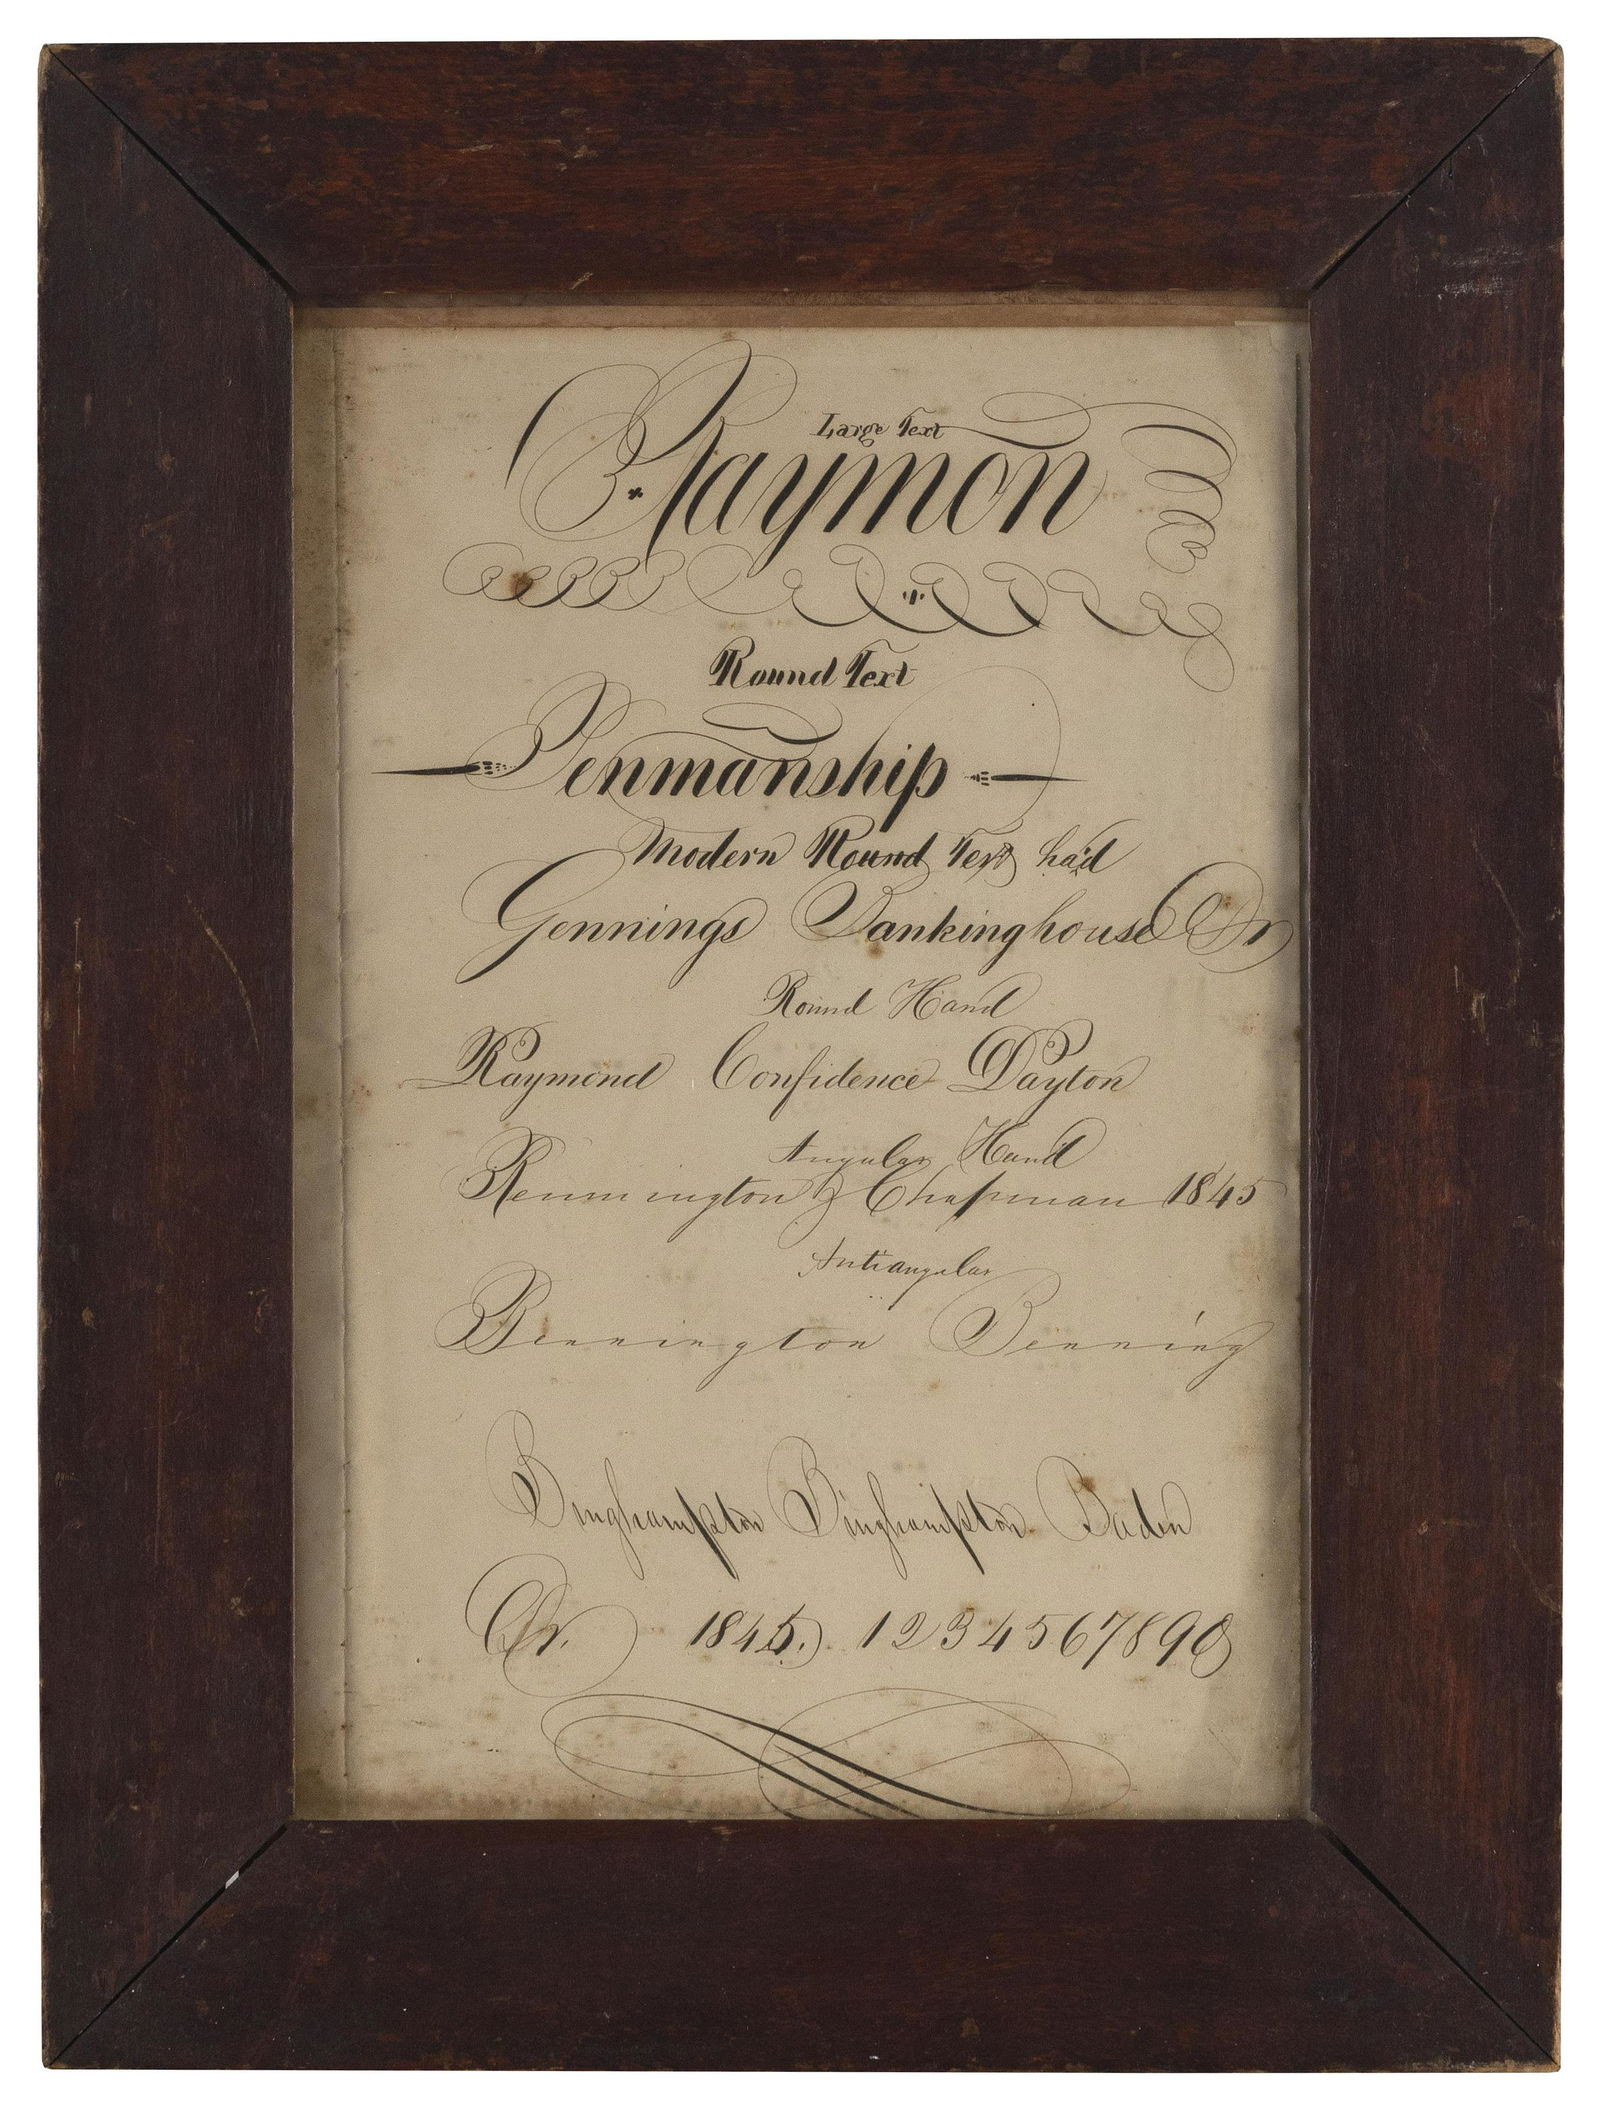 Large Text
Raymon
Round Text
Penmanship
Modern Round Text had
Jennings Bankinghouse Dr
Round Hand
Raymond Confidence Dayton
Angular Hand
Rennington & Chapman 1845
Antiangular
Bennington Benning
Binghampton Binghampton Baden
Dr. 1845. 1234567890